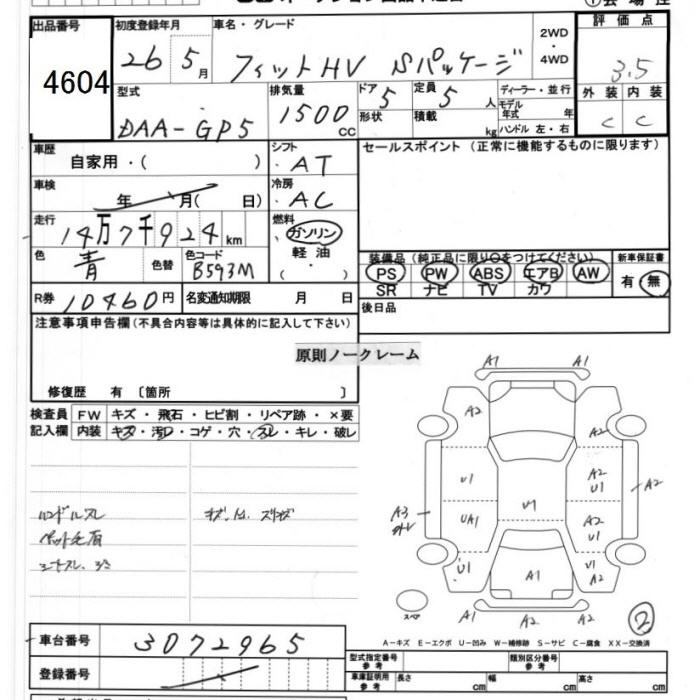 出品番号 初度登録年月 車名・グレード 2WD・4WD 評価点
4604 26 5月 フィットHV Sパッケージ 3.5
型式 排気量 ドア 5 定員 5人 ディーラー・並行 外装 内装
DAA-GP5 1500cc 形状 積載 kg モデル年式 年 C C
ハンドル 左・右
車歴 自家用・( ) シフト ・AT セールスポイント (正常に機能するものに限ります)
車検 年 月( 日) 冷房 ・AC
走行 14万7千924km 燃料 ガソリン
色 青 色替 色コード B593M 軽油 ・( )
装備品 (純正品に限り○をつけてください) 新車保証書
PS PW ABS エアB AW 有 無
SR ナビ TV カワ
R券 10460円 名変通知期限 月 日 後日品
注意事項申告欄 (不具合内容等は具体的に記入して下さい)
原則ノークレーム
修復歴 有 〔箇所 〕
検査員 FW キズ・飛石・ヒビ割・リペア跡・×要
記入欄 内装 キズ・汚れ・コゲ・穴・スレ・キレ・破し
A1 A1
A2 A2
U1 A2 U1 A2
A3 UA1 U1 A2 U1
U1 A1 U1 A2
A1 A2 A2
スペア
ハンドルスレ キズ
ペット毛有
2
A-キズ E-エクボ U-凹み W-補修跡 S-サビ C-腐食 XX-交換済
車台番号 3072965
登録番号
型式指定番号 参考 類別区分番号 参考
車庫証明用 参考 長さ cm 幅 cm 高さ cm